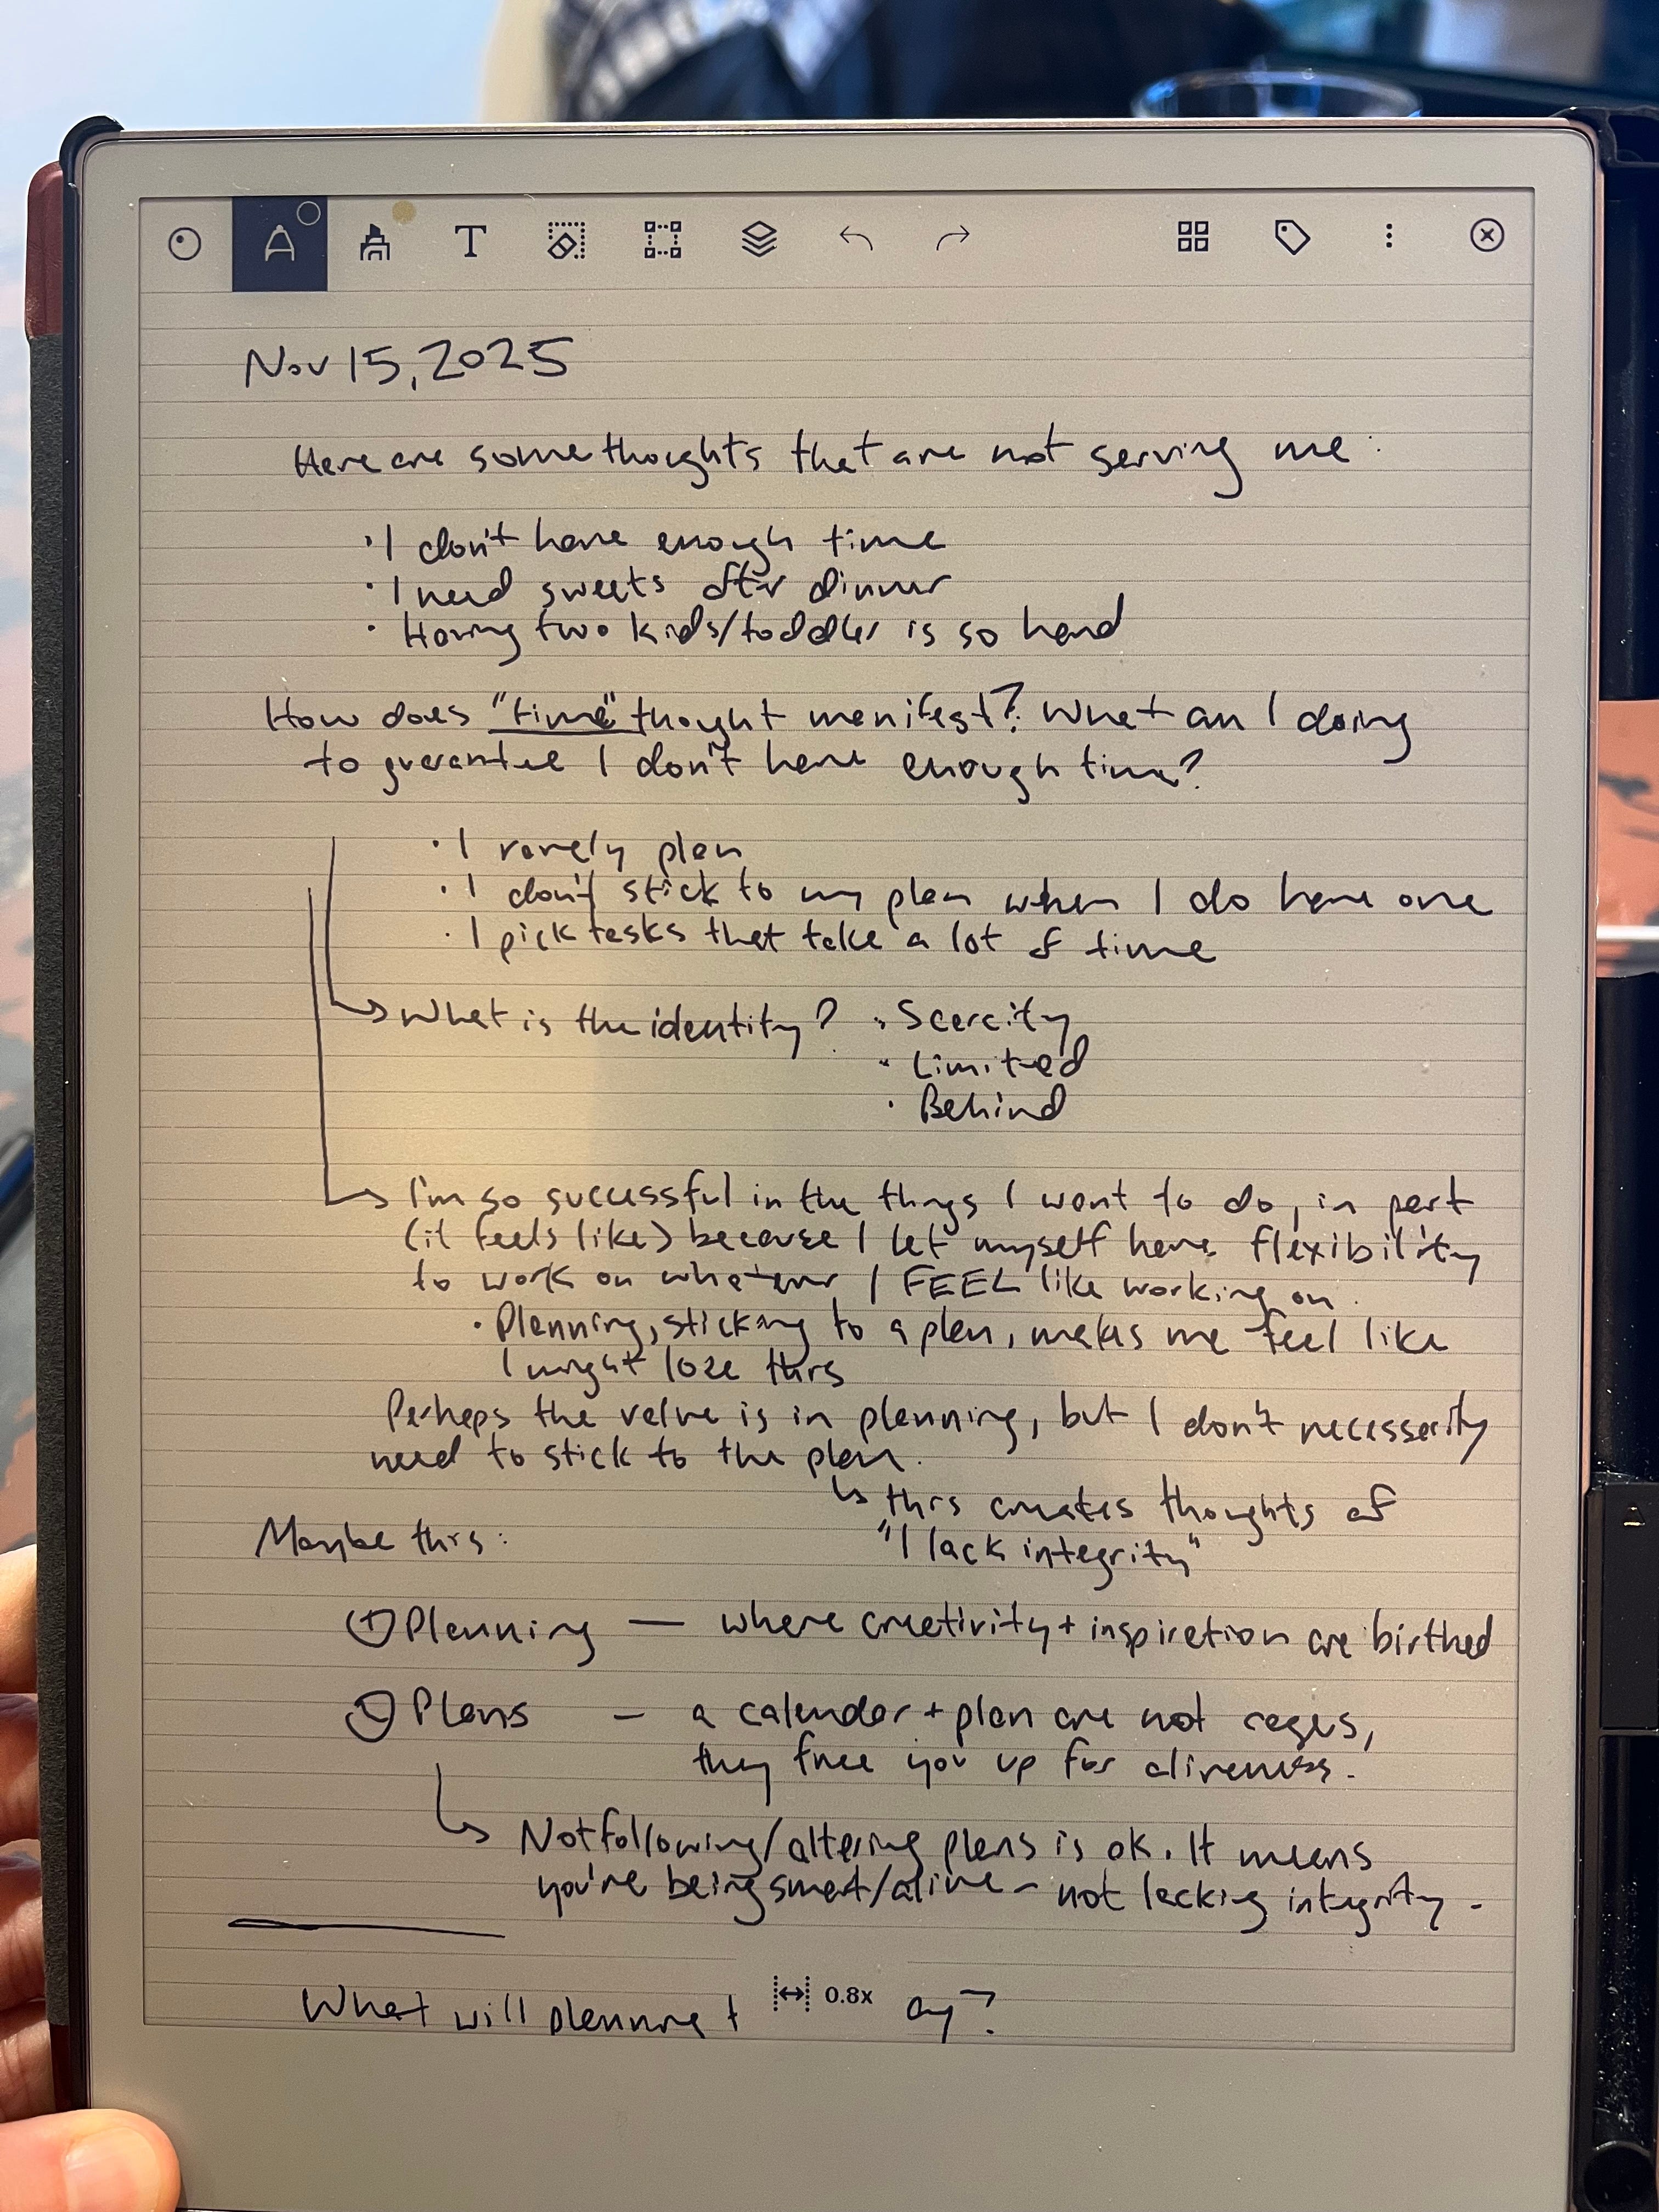 Nov 15, 2025
Here are some thoughts that are not serving me:
• I don't have enough time
• I need sweets after dinner
• Having two kids/toddler is so hard
How does "time" thought manifest? What am I doing
to guarantee I don't have enough time?
• I rarely plan
• I don't stick to my plan when I do have one
• I pick tasks that take a lot of time
What is the identity? • Scarcity
• Limited
• Behind
I'm so successful in the things I want to do, in part
(it feels like) because I let myself have flexibility
to work on whatever I FEEL like working on.
• Planning, sticking to a plan, makes me feel like
I might loze this
Perhaps the value is in planning, but I don't necessarily
need to stick to the plan.
↳ this creates thoughts of
Maybe this:
"I lack integrity"
① Planning — where creativity + inspiration are birthed
② Plans — a calendar + plan are not cages,
they free you up for aliveness.
Not following/altering plans is ok. It means
you're being smart/alive - not lacking integrity.
0.8x
What will planning t ay?